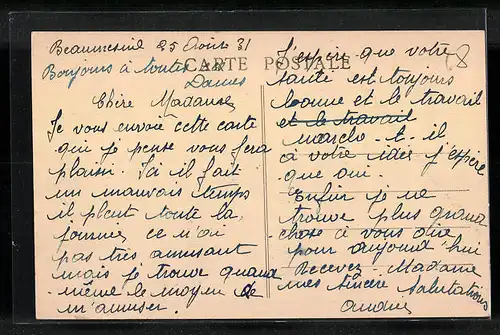 Beaumesnil 25 Août 31
CARTE POSTALE
8
Bonjours à toutes ces
Dames
Chère Madame
Je vous envoie cette carte
qui je pense vous fera
plaisir. Ici il fait
un mauvais temps
il pleut toute la
journée ce n'ai
pas très amusant
mais je trouve quand
même le moyen de
m'amuser.
J'espère que votre
santé est toujours
bonne et le travail
et le travail
marche-t-il
à votre idée j'espère
que oui.
Enfin je ne
trouve plus grand
chose à vous dire
pour aujourd'hui
Recevez Madame
mes sincère salutations